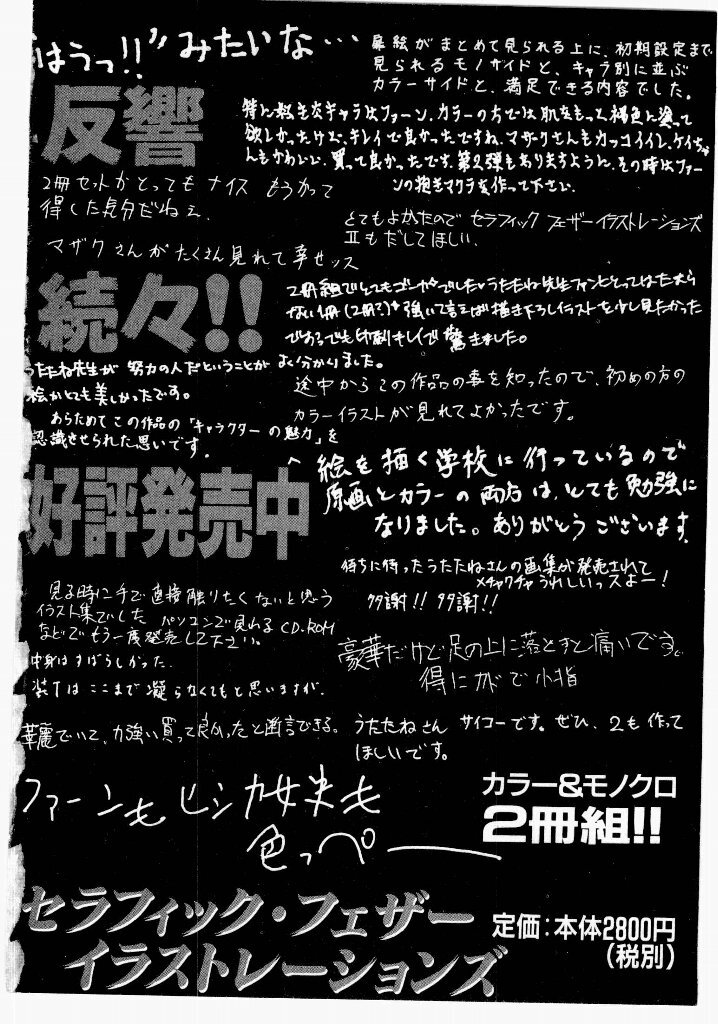 はうっ!!”みたいな…
扉絵がまとめて見られる上に、初期設定まで
見られるモノサイドと、キャラ別に並ぶ
カラーサイドと、満足できる内容でした。
反響
特に好きなキャラはファーン、カラーの方では肌をもっと褐色に塗って
欲しかったけど、キレイで良かったですね。マザクさんもカッコイイし、ケイちゃ
んもかわいい、買って良かったです。第2弾もありますように、その時はファー
ンの抱きマクラを作って下さい.
2冊セットがとってもナイス もうかって
得した気分だねぇ.
とてもよかたので セラフィック フェザーイラストレーションズ
IIもだしてほしい.
マザクさんがたくさん見れて幸せッス
続々!!
2冊組でとてもゴーカでした。うたたね先生ファンにとってはたまら
ない1冊(2冊?)強いて言えば描き下ろしイラストを少し見たかった
でもでも印刷キレイで驚きました。
うたたね先生が 努力の人だということが よく分かりました。
絵がとても美しかったです。
途中からこの作品の事を知ったので、初めの方の
カラーイラストが見れてよかったです。
あらためてこの作品の「キャラクターの魅力」を
認識させられた思いです.
絵を描く学校に行っているので
原画とカラーの両方は、とても勉強に
なりました。ありがとうございます.
好評発売中
待ちに待ったうたたねさんの画集が発売されて
メチャクチャうれしいっスよー!
多謝!! 多謝!!
見る時に手で直接触りたくないと思う
イラスト集でした パソコンで見れるCD-ROM
などでもう一度発売して下さい。
中身はすばらしかった.
装丁はここまで凝らなくてもと思いますが.
豪華だけど足の上に落とすと痛いです。
得にカドで小指
華麗でいて、力強い買って良かったと断言できる。
うたたねさん サイコーです。ぜひ、2も作って
ほしいです。
ファーンもヒシカ女史も
色っペー
カラー&モノクロ
2冊組!!
セラフィック・フェザー
イラストレーションズ
定価:本体2800円
(税別)